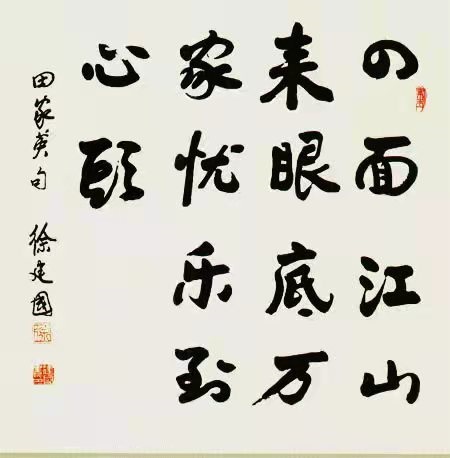 四面江山
来眼底万
家忧乐到
心頭
田家英句 徐建國